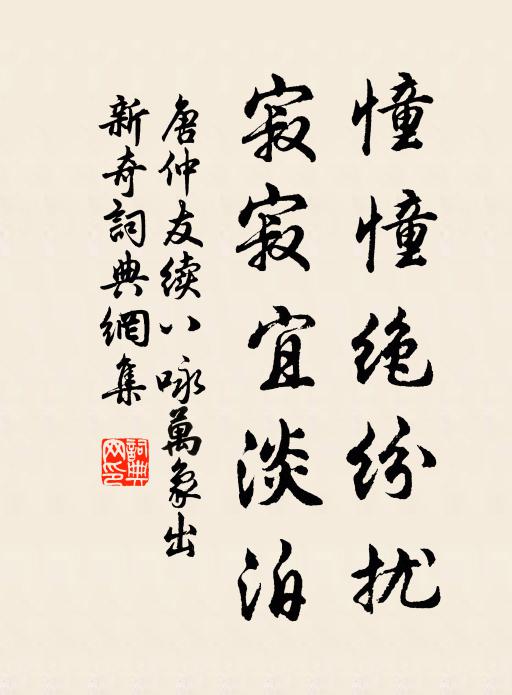 憧憧絶纷扰
寂寂宜淡泊
唐仲友续八咏萬象出
新奇詞典網集
詞典网印